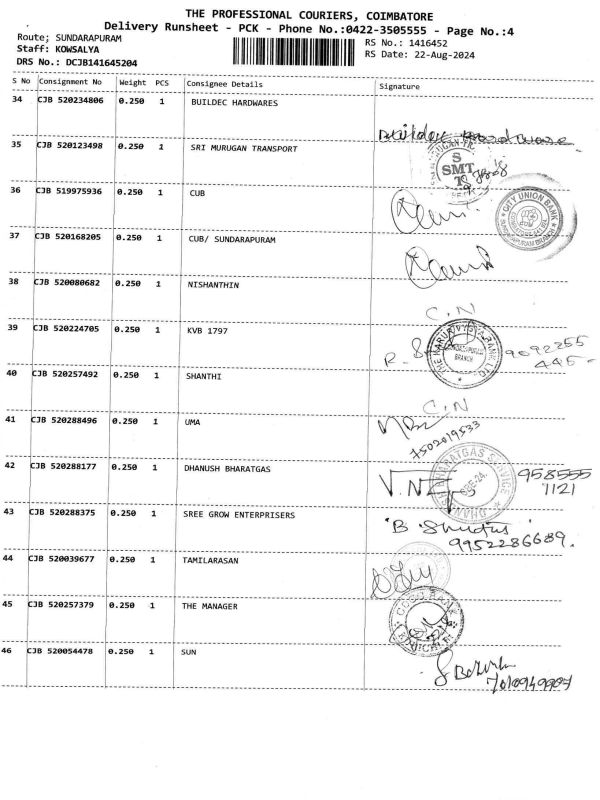 THE PROFESSIONAL COURIERS, COIMBATORE
Delivery Runsheet - PCK - Phone No.:0422-3505555 - Page No.:4
Route; SUNDARAPURAM RS No.: 1416452
Staff: KOWSALYA RS Date: 22-Aug-2024
DRS No.: DCJB141645204
S No Consignment No Weight PCS Consignee Details Signature
34 CJB 520234806 0.250 1 BUILDEC HARDWARES
Buildec Hardware
35 CJB 520123498 0.250 1 SRI MURUGAN TRANSPORT
S
SMT
36 CJB 519975936 0.250 1 CUB
CITY UNION BANK
37 CJB 520168205 0.250 1 CUB/ SUNDARAPURAM
38 CJB 520080682 0.250 1 NISHANTHIN
C.N
39 CJB 520224705 0.250 1 KVB 1797
THE KARUR VYSYA BANK LTD
BRANCH
9092255
445-
40 CJB 520257492 0.250 1 SHANTHI
C.N
41 CJB 520288496 0.250 1 UMA
7502019533
42 CJB 520288177 0.250 1 DHANUSH BHARATGAS
DHANUSH BHARATGAS SERVICE
V.N
958555
7121
43 CJB 520288375 0.250 1 SREE GROW ENTERPRISERS
9952286689.
44 CJB 520039677 0.250 1 TAMILARASAN
45 CJB 520257379 0.250 1 THE MANAGER
46 CJB 520054478 0.250 1 SUN